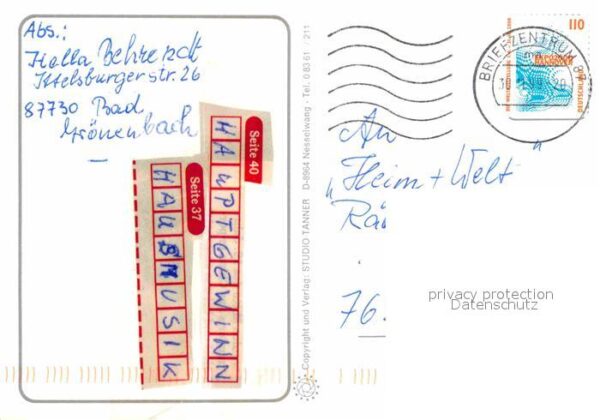 Abs.:
Halla Behrendt
Ittelsburger str. 26
87730 Bad
Grönenbach
Seite 40
HAUPTGEWINN
Seite 37
HAUSMUSIK
Copyright und Verlag: STUDIO TANNER D-8964 Nesselwang · Tel. 0 83 61 / 211
110
BRIEFZENTRUM
DEUTSCHLAND
An
"Heim + Welt"
Rä
76.
privacy protection
Datenschutz